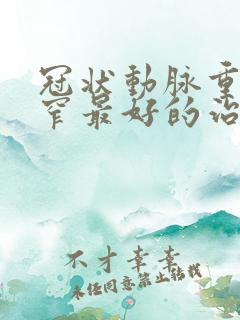 冠状動脉重
窄最好的治
不才幸幸
未经同意禁止转载